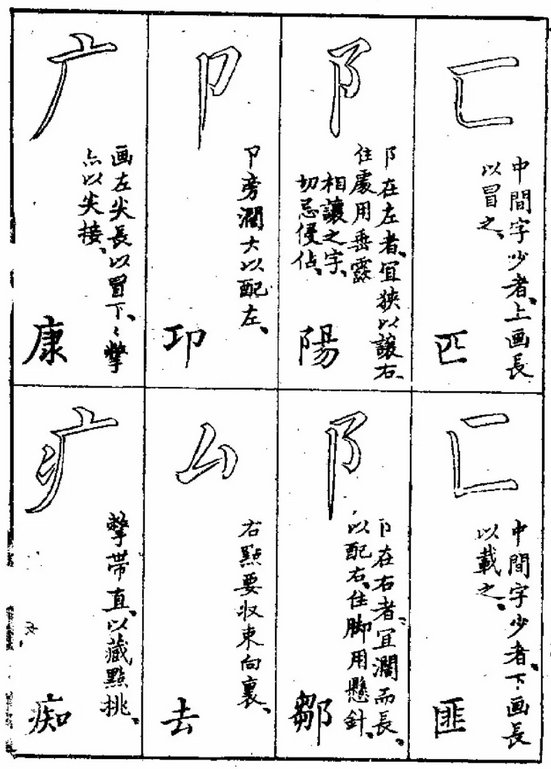 匚
中間字少者、上画長
以冒之、
匹
阝
阝在左者、宜狹以讓右、
住處用垂露
相讓之字、
切忌侵佔、
陽
卩
卩旁濶大以配左、
卭
广
画左尖長以冒下、〻撆
点以尖接、
康
匚
中間字少者、下画長
以載之、
匪
阝
阝在右者、宜濶而長、
以配右、住脚用懸針、
鄒
厶
右點要収束向裏、
去
疒
撆带直、以藏點挑、
痴